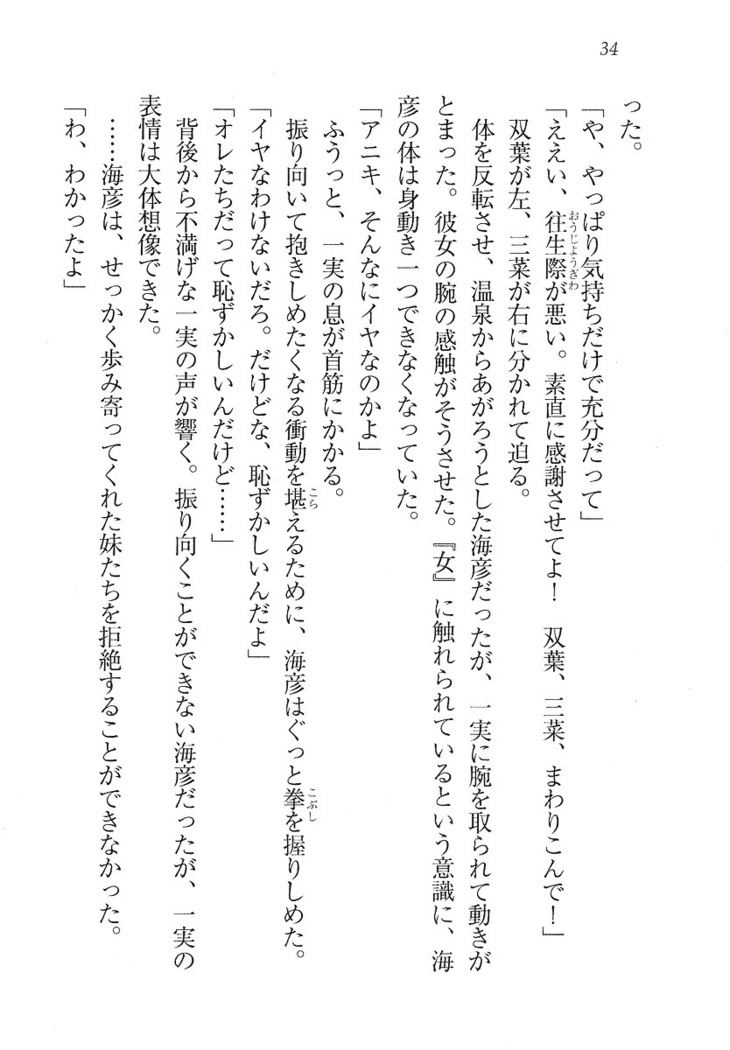 34
った。
「や、やっぱり気持ちだけで充分だって」
「ええい、往生際が悪い。素直に感謝させてよ！　双葉、三菜、まわりこんで！」
おうじょうぎわ
双葉が左、三菜が右に分かれて迫る。
体を反転させ、温泉からあがろうとした海彦だったが、一実に腕を取られて動きが
とまった。彼女の腕の感触がそうさせた。『女』に触れられているという意識に、海
彦の体は身動き一つできなくなっていた。
「アニキ、そんなにイヤなのかよ」
ふうっと、一実の息が首筋にかかる。
振り向いて抱きしめたくなる衝動を堪えるために、海彦はぐっと拳を握りしめた。
こら
こぶし
「イヤなわけないだろ。だけどな、恥ずかしいんだよ」
「オレたちだって恥ずかしいんだけど……」
背後から不満げな一実の声が響く。振り向くことができない海彦だったが、一実の
表情は大体想像できた。
……海彦は、せっかく歩み寄ってくれた妹たちを拒絶することができなかった。
「わ、わかったよ」